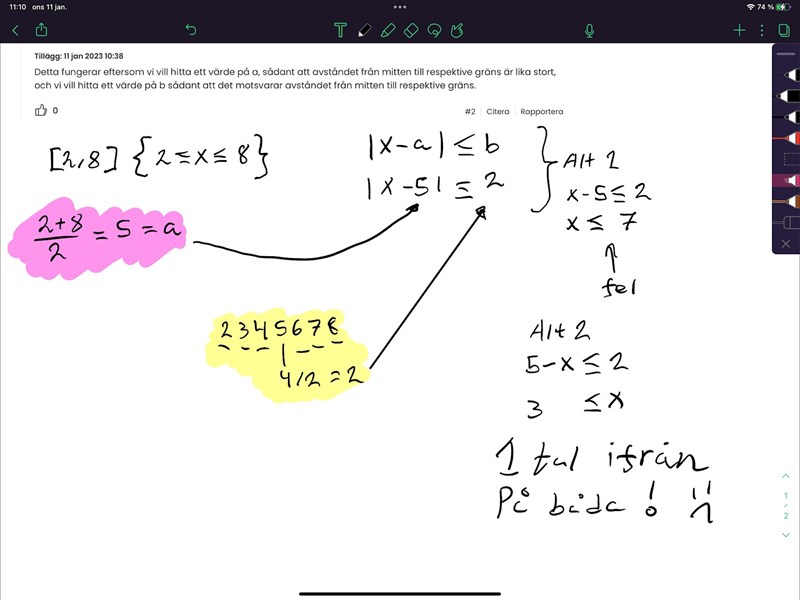 11:10 ons 11 jan.
74 %
Tillägg: 11 jan 2023 10:38
Detta fungerar eftersom vi vill hitta ett värde på a, sådant att avståndet från mitten till respektive gräns är lika stort,
och vi vill hitta ett värde på b sådant att det motsvarar avståndet från mitten till respektive gräns.
0
#2 Citera Rapportera
[2,8] {2≤x≤8}
|x-a| ≤ b
|x-5| ≤ 2
(2+8)/2 = 5 = a
2 3 4 5 6 7 8
4/2 = 2
Alt 2
x-5 ≤ 2
x ≤ 7
↑
fel
Alt 2
5-x ≤ 2
3 ≤ x
1 tal ifrån
På båda !
1
/
2